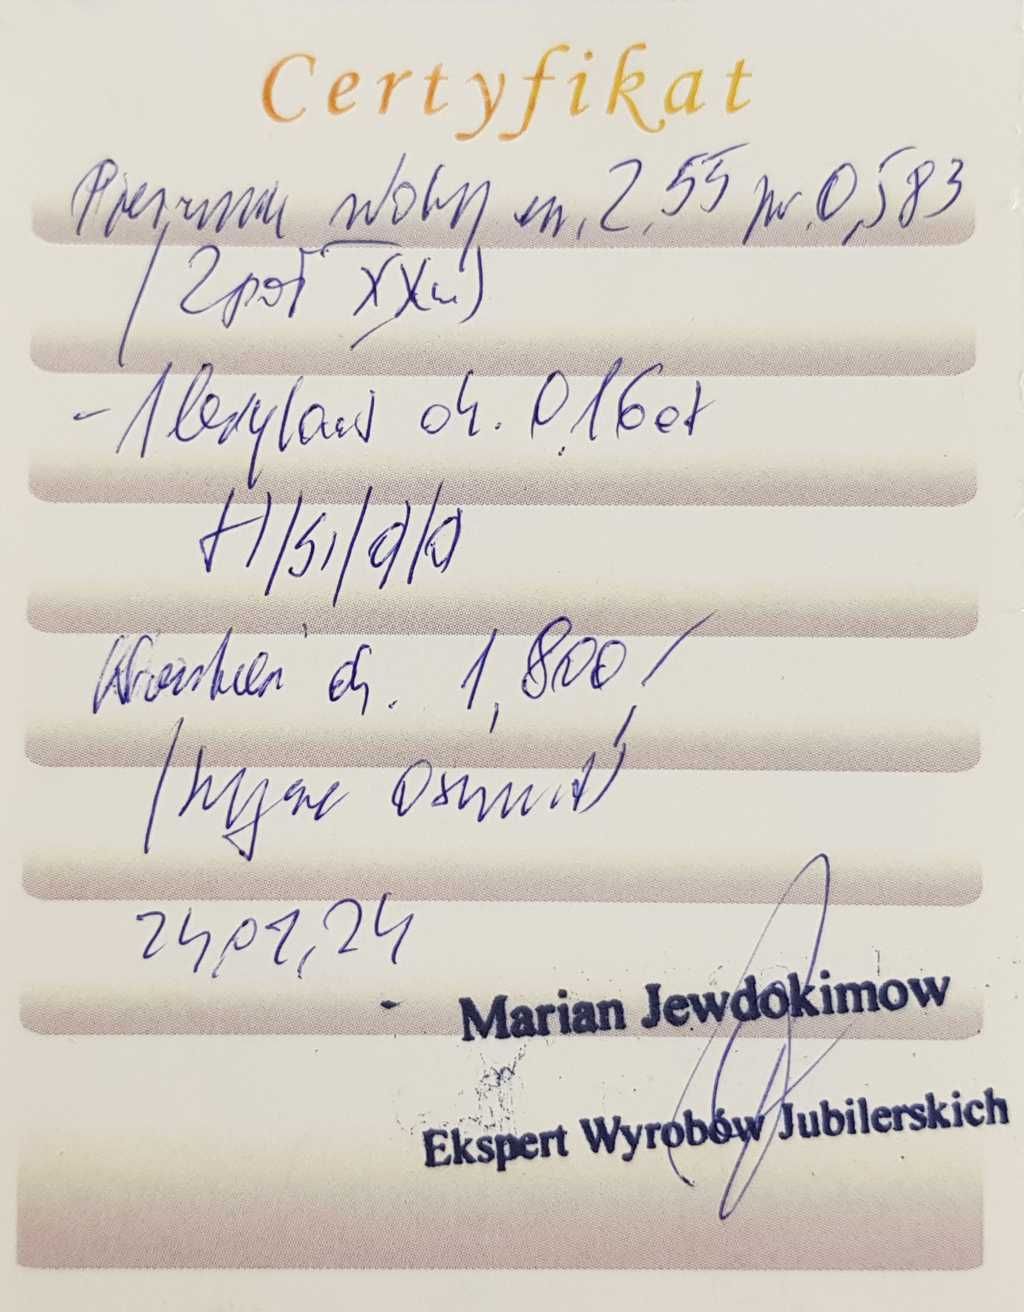 Certyfikat
Pierścionek złoty m. 2,55 pr. 0,583
/2 poł XXw/
- 1 brylant ok. 0,16 ct
H/si/d/d
Wartość ok. 1,800,-
/tysiąc osiemset/
24,01,24
Marian Jewdokimow
Ekspert Wyrobów Jubilerskich